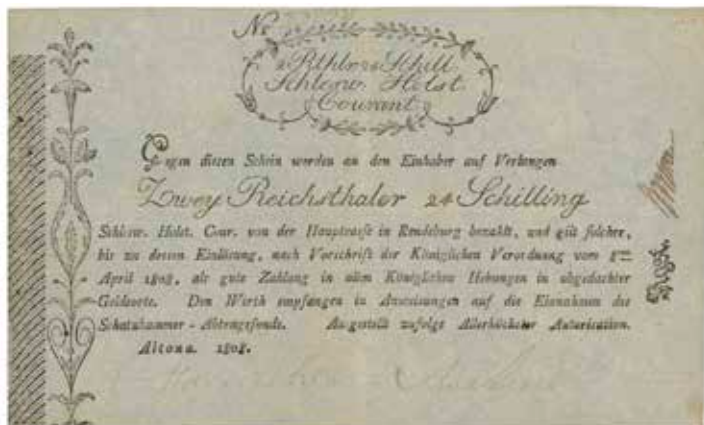 No
2 Rthlr 24 Schill.
Schlesw. Holst.
Courant.
Gegen diesen Schein werden an den Einhaber auf Verlangen
Zwey Reichsthaler 24 Schilling
Schlesw. Holst. Cour. von der Hauptcasse in Rendsburg bezahlt, und gilt solcher,
bis zu dessen Einlösung, nach Vorschrift der Königlichen Verordnung vom 8ten
April 1808, als gute Zahlung in allen Königlichen Hebungen in abgedachter
Geldsorte. Den Werth empfangen in Anweisungen auf die Einnahmen des
Schatzkammer-Abtragsfonds. Ausgestellt zufolge Allerhöchster Autorisation.
Altona. 1808.